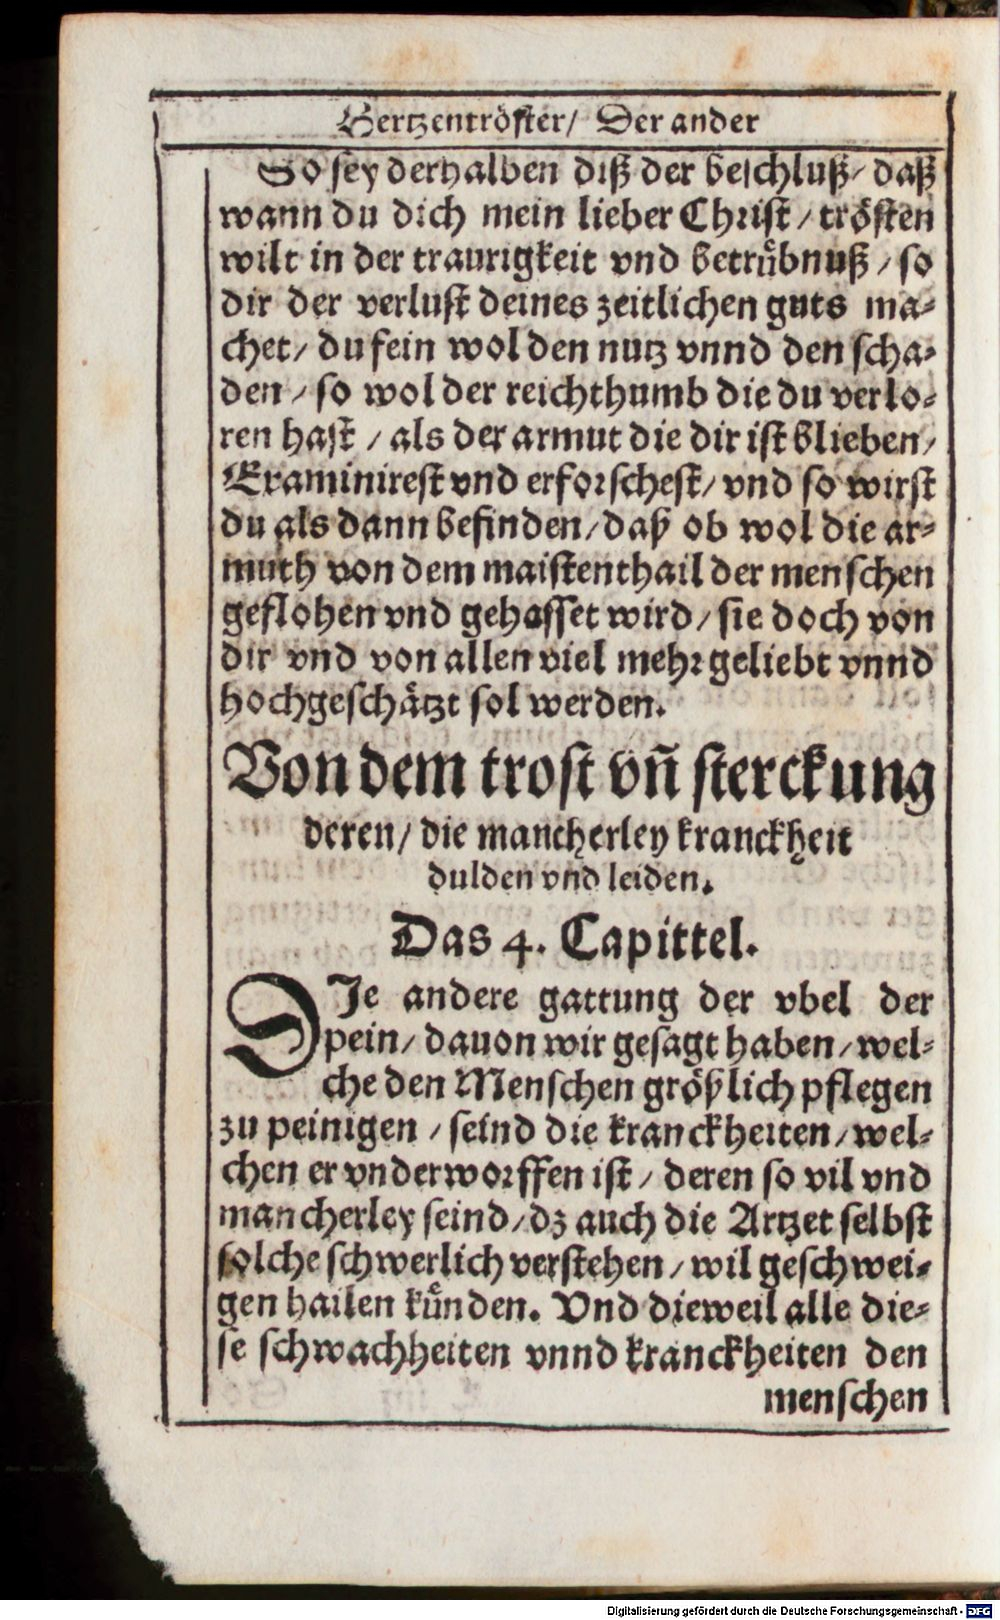 Hertzentröster/ Der ander
So sey derhalben diß der beschluß/ daß
wann du dich mein lieber Christ/ trösten
wilt in der traurigkeit vnd betrůbnuß/ so
dir der verlust deines zeitlichen guts ma-
chet/ du fein wol den nutz vnnd den scha-
den/ so wol der reichthumb die du verlo-
ren hast/ als der armut die dir ist blieben/
Examinirest vnd erforschest/ vnd so wirst
du als dann befinden/ daß ob wol die ar-
muth von dem maistenthail der menschen
geflohen vnd gehasset wird/ sie doch von
dir vnd von allen viel mehr geliebt vnnd
hochgeschätzt sol werden.
Von dem trost vñ sterckung
deren/ die mancherley kranckheit
dulden vnd leiden.
Das 4. Capittel.
DJe andere gattung der vbel der
pein/ dauon wir gesagt haben/ wel-
che den Menschen größlich pflegen
zu peinigen/ seind die kranckheiten/ wel-
chen er vnderworffen ist/ deren so vil vnd
mancherley seind/ dz auch die Artzet selbst
solche schwerlich verstehen/ wil geschwei-
gen hailen kůnden. Vnd dieweil alle die-
se schwachheiten vnnd kranckheiten den
menschen
Digitalisierung gefördert durch die Deutsche Forschungsgemeinschaft - DFG